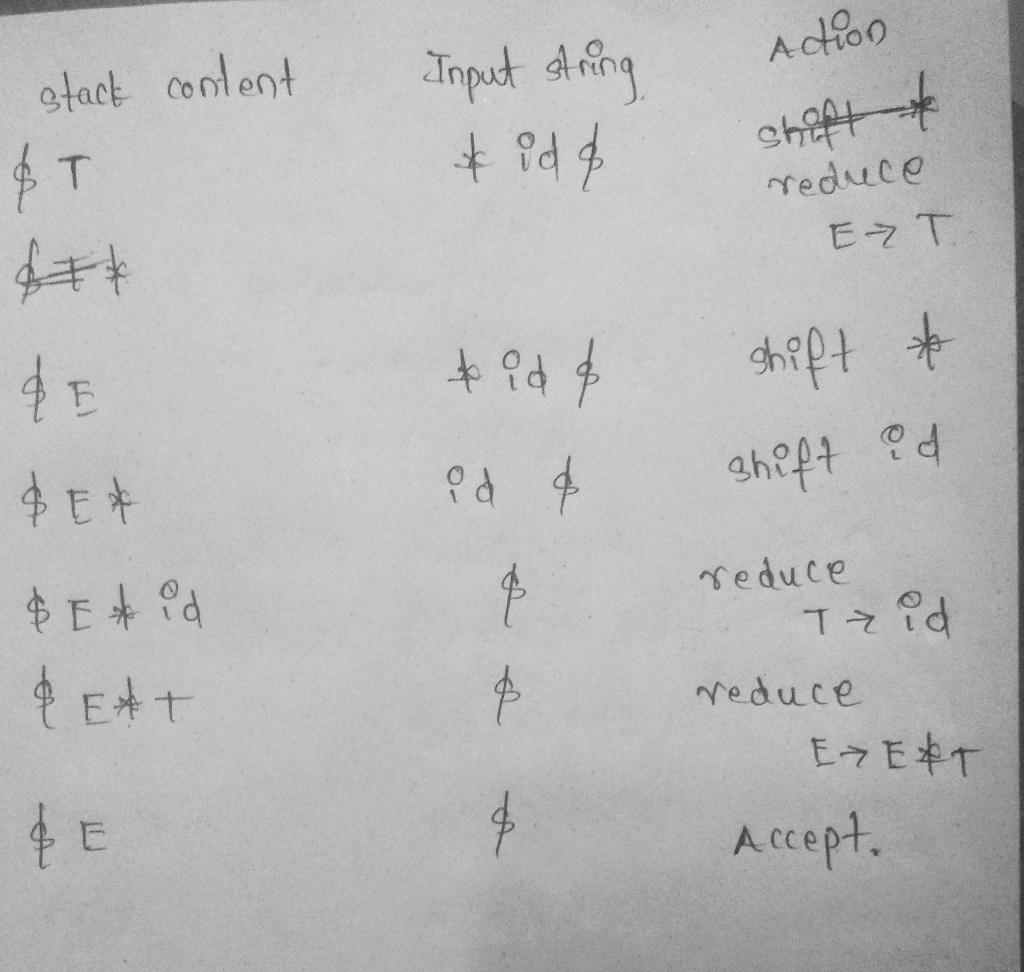 stack content Input string Action
$ T * id $ shift *
reduce
E → T
$ T *
$ E * id $ shift *
$ E * id $ shift id
$ E * id $ reduce
T → id
$ E * T $ reduce
E → E * T
$ E $ Accept.